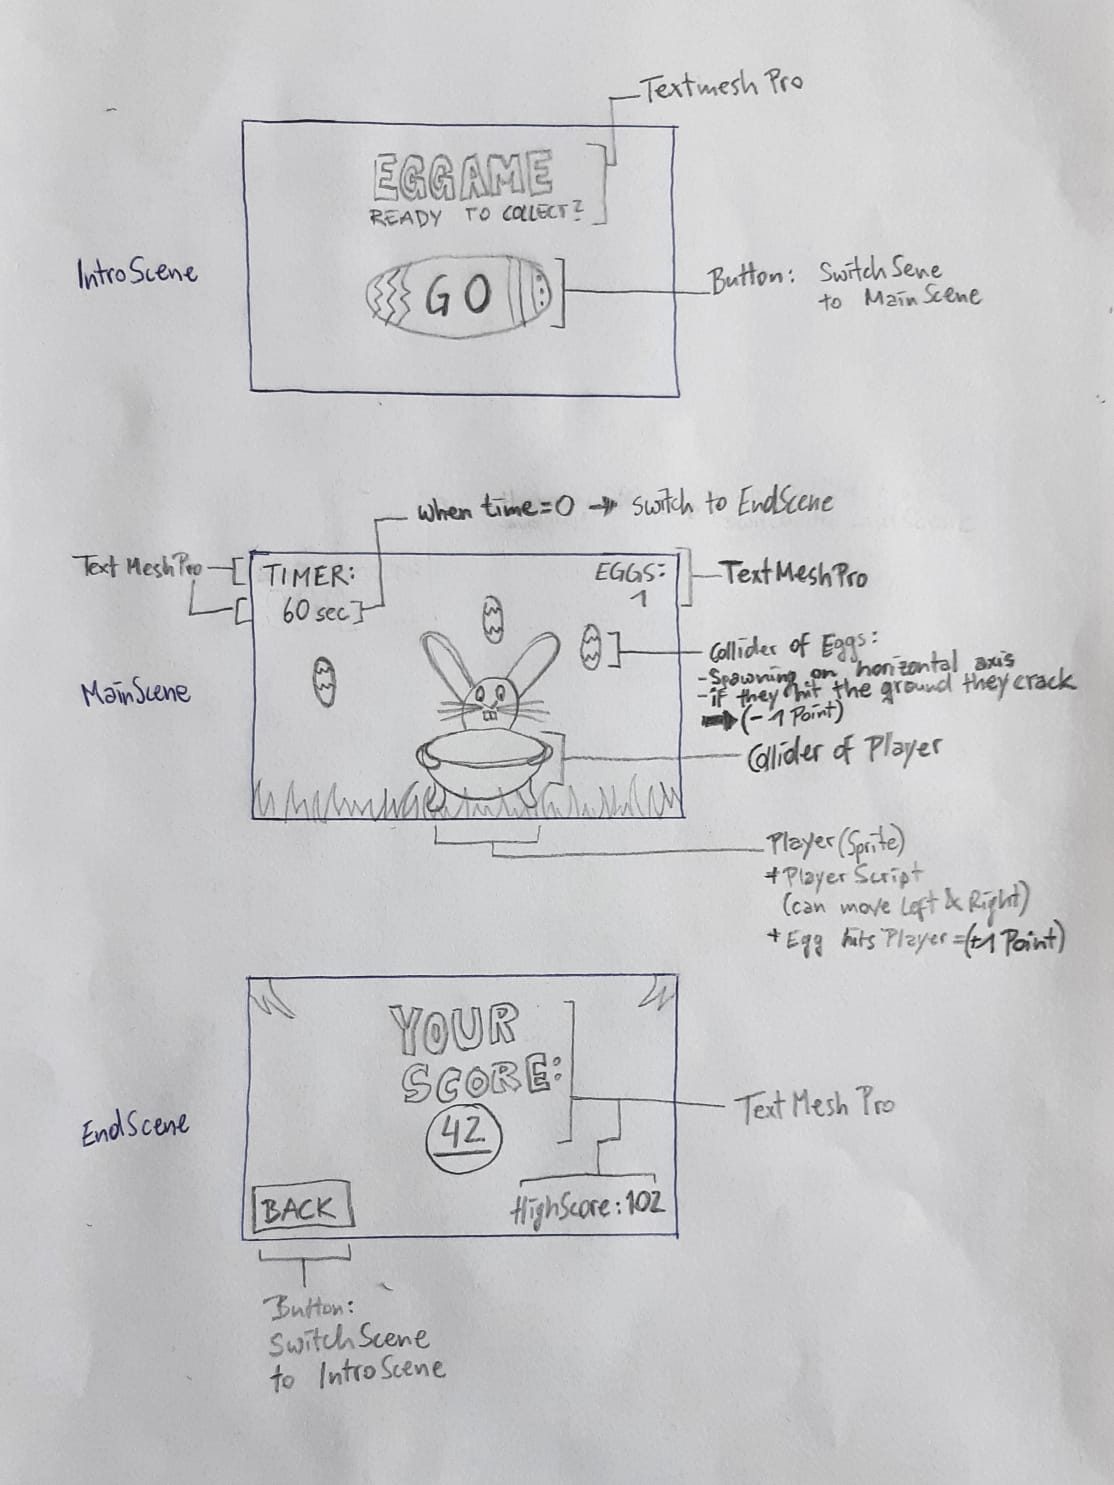 Textmesh Pro
EGGAME
READY TO COLLECT?
IntroScene
GO
Button: SwitchSene
to MainScene
when time=0 → switch to EndScene
TextMeshPro
TIMER:
60 sec
EGGS:
1
TextMeshPro
MainScene
Collider of Eggs:
-Spawning on horizontal axis
-if they hit the ground they crack
➡(-1 Point)
Collider of Player
Player (Sprite)
+Player Script
(can move Left & Right)
+ Egg hits Player=(+1 Point)
YOUR
SCORE:
42
EndScene
TextMesh Pro
BACK
HighScore: 102
Button:
SwitchScene
to IntroScene